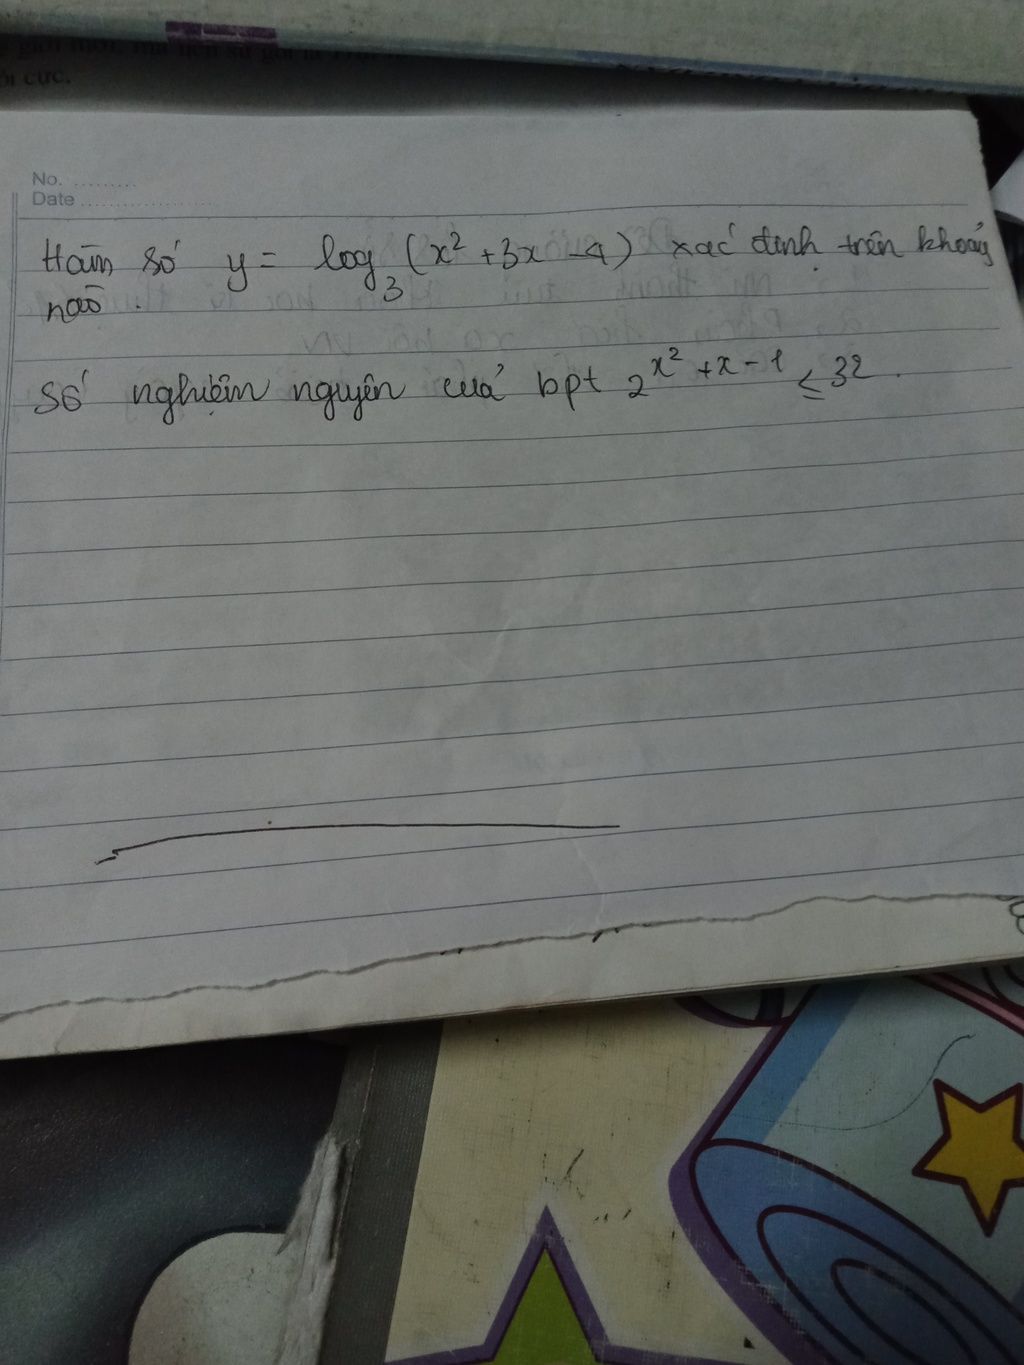 ới cực.
No. ..........
Date ....................
Hàm số y = log₃ (x² + 3x - 4) xác định trên khoảng
nào
Số nghiệm nguyên của bpt 2^(x² + x - 1) ≤ 32.